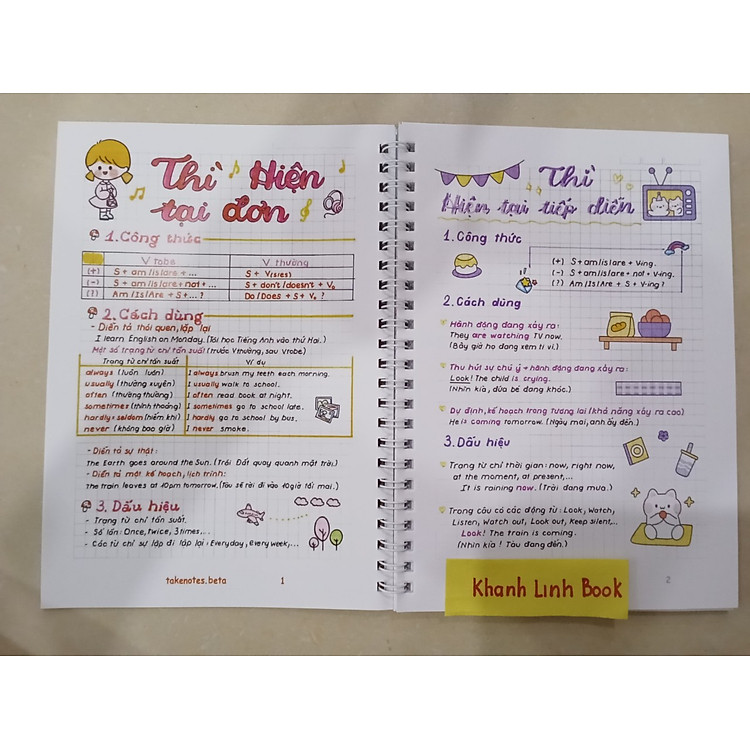 Thì Hiện
tại đơn
1. Công thức
V tobe V thường
(+) S + am/is/are + ... S + V(s/es)
(-) S + am/is/are + not + ... S + don't/doesn't + V₀
(?) Am/Is/Are + S + ...? Do/Does + S + V₀ ?
2. Cách dùng
- Diễn tả thói quen, lặp lại
I learn English on Monday. (Tôi học Tiếng Anh vào thứ Hai.)
Một số trạng từ chỉ tần suất (trước V thường, sau V tobe)
Trạng từ chỉ tần suất Ví dụ
always (luôn luôn) I always brush my teeth each morning.
usually (thường xuyên) I usually walk to school.
often (thường thường) I often read book at night.
sometimes (thỉnh thoảng) I sometimes go to school late.
hardly = seldom (hiếm khi) I hardly go to school by bus.
never (không bao giờ) I never smoke.
- Diễn tả sự thật:
The Earth goes around the Sun. (Trái Đất quay quanh mặt trời.)
- Diễn tả một kế hoạch, lịch trình:
The train leaves at 10pm tomorrow. (Tàu sẽ rời đi vào 10giờ tối mai.)
3. Dấu hiệu
- Trạng từ chỉ tần suất.
- Số lần: Once, twice, 3 times, ...
- Các từ chỉ sự lặp đi lặp lại: Everyday, Every week, ...
takenotes.beta 1
Thì
Hiện tại tiếp diễn
1. Công thức
(+) S + am/is/are + V-ing.
(-) S + am/is/are + not + V-ing.
(?) Am/Is/Are + S + V-ing ?
2. Cách dùng
Hành động đang xảy ra:
They are watching TV now.
(Bây giờ họ đang xem ti vi.)
Thu hút sự chú ý + hành động đang xảy ra:
Look! The child is crying.
(Nhìn kìa, đứa bé đang khóc.)
Dự định, kế hoạch trong tương lai (khả năng xảy ra cao)
He is coming tomorrow. (Ngày mai, anh ấy đến.)
3. Dấu hiệu
Trạng từ chỉ thời gian: now, right now,
at the moment, at present, ...
It is raining now. (Trời đang mưa.)
Trong câu có các động từ: Look, Watch,
Listen, Watch out, Look out, Keep silent, ..
Look! The train is coming.
(Nhìn kìa! Tàu đang đến.)
Khanh Linh Book
2